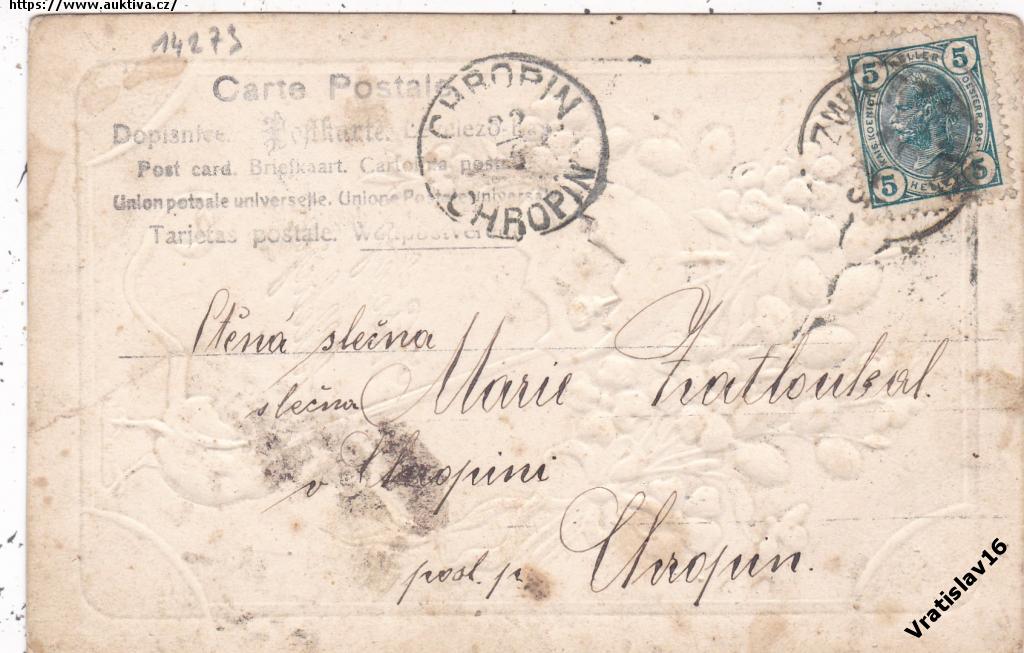 https://www.auktiva.cz/
14273
Carte Postale
Dopisnice. Postkarte.
Post card. Briefkaart. Cartolina
Union postale universelle. Unione Postale universale
Tarjetas postale. Weltpostverein
CHROPIN
22
CHROPIŇ
5 HELLER 5
KAIS. KOENIGL. OESTERR. POST
5 HELLER 5
Ctěná slečna
slečna Marie Zatloukal.
v Chropini
posl. p. Chropin.
Vratislav16